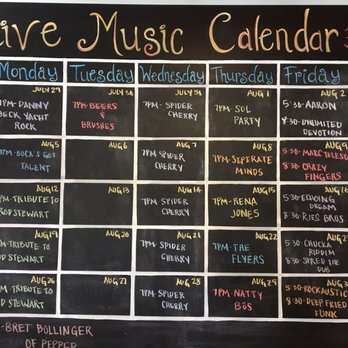 ive Music Calendar
Monday Tuesday Wednesday Thursday Friday
JULY 29
7PM-DANNY
BECK YACHT
ROCK
JULY 30
7PM-BEERS
&
BRUSHES
JULY 31
7PM- SPIDER
CHERRY
AUG 1
7PM- SOL
PARTY
AUG 2
5:30-AARON
8:30-UNLIMITED
DEVOTION
AUG 5
PM-BOCA'S GOT
TALENT
AUG 6
AUG 7
7PM SPIDER
CHERRY
AUG 8
7PM-SEPERATE
MINDS
AUG 9
5:30-MARC TELESCO
8:30-CRAZY
FINGERS
AUG 12
PM-TRIBUTE TO
ROD STEWART
AUG 13
AUG 14
7PM-SPIDER
CHERRY
AUG 15
7PM-RENA
JONES
AUG 16
5:30-ECHOING
DREAM
8:30-RIES BROS
AUG 19
PM-TRIBUTE TO
D STEWART
AUG 20
AUG 21
7PM-SPIDER
CHERRY
AUG 22
7PM-THE
FLYERS
5:30-CHUCKA
RIDDIM
8:30-SPRED THE
DUB
AUG 26
PM-TRIBUTE TO
D STEWART
AUG 27
AUG 28
7PM-SPIDER
CHERRY
AUG 29
7PM-NATTY
BOS
5:30-ROCKAUSTIC
8:30-DEEP FRIED
FUNK
-BRET BOLLINGER
OF PEPPER